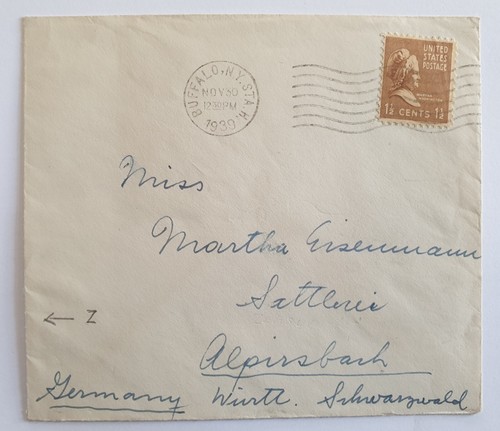 BUFFALO, N.Y. STA. H.
NOV 30
12:30 PM
1939
UNITED
STATES
POSTAGE
1½ CENTS 1½
Miss
Martha Eisenmann
Sattlerei
← Z
Alpirsbach
Germany Württ. Schwarzwald